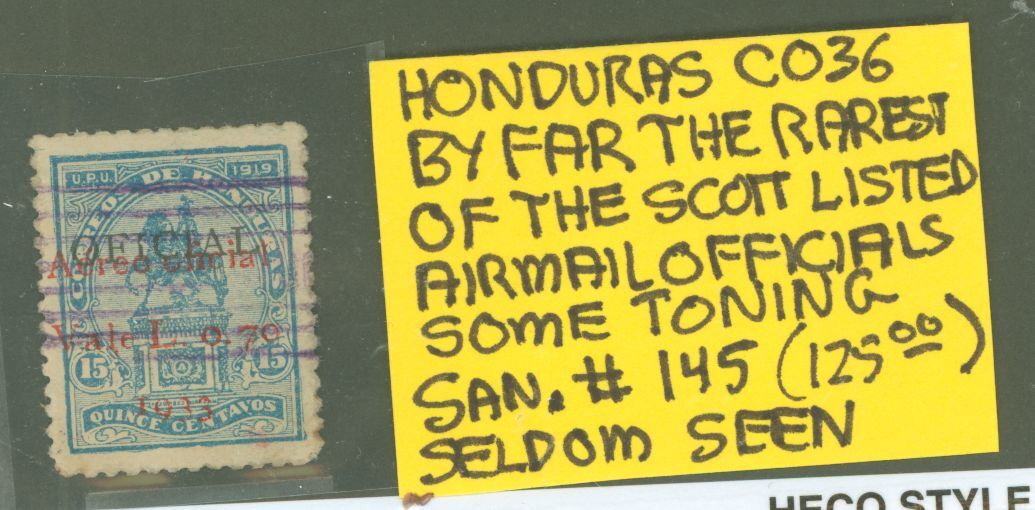 U.P.U. 1919
CORREOS DE HONDURAS
OFICIAL
Aereo oficial
Vale L. 0.70
15 15
1933
QUINCE CENTAVOS
HONDURAS CO36
BY FAR THE RAREST
OF THE SCOTT LISTED
AIRMAIL OFFICIALS
SOME TONING
SAN. # 145 (125⁰⁰)
SELDOM SEEN
HECO STYLE